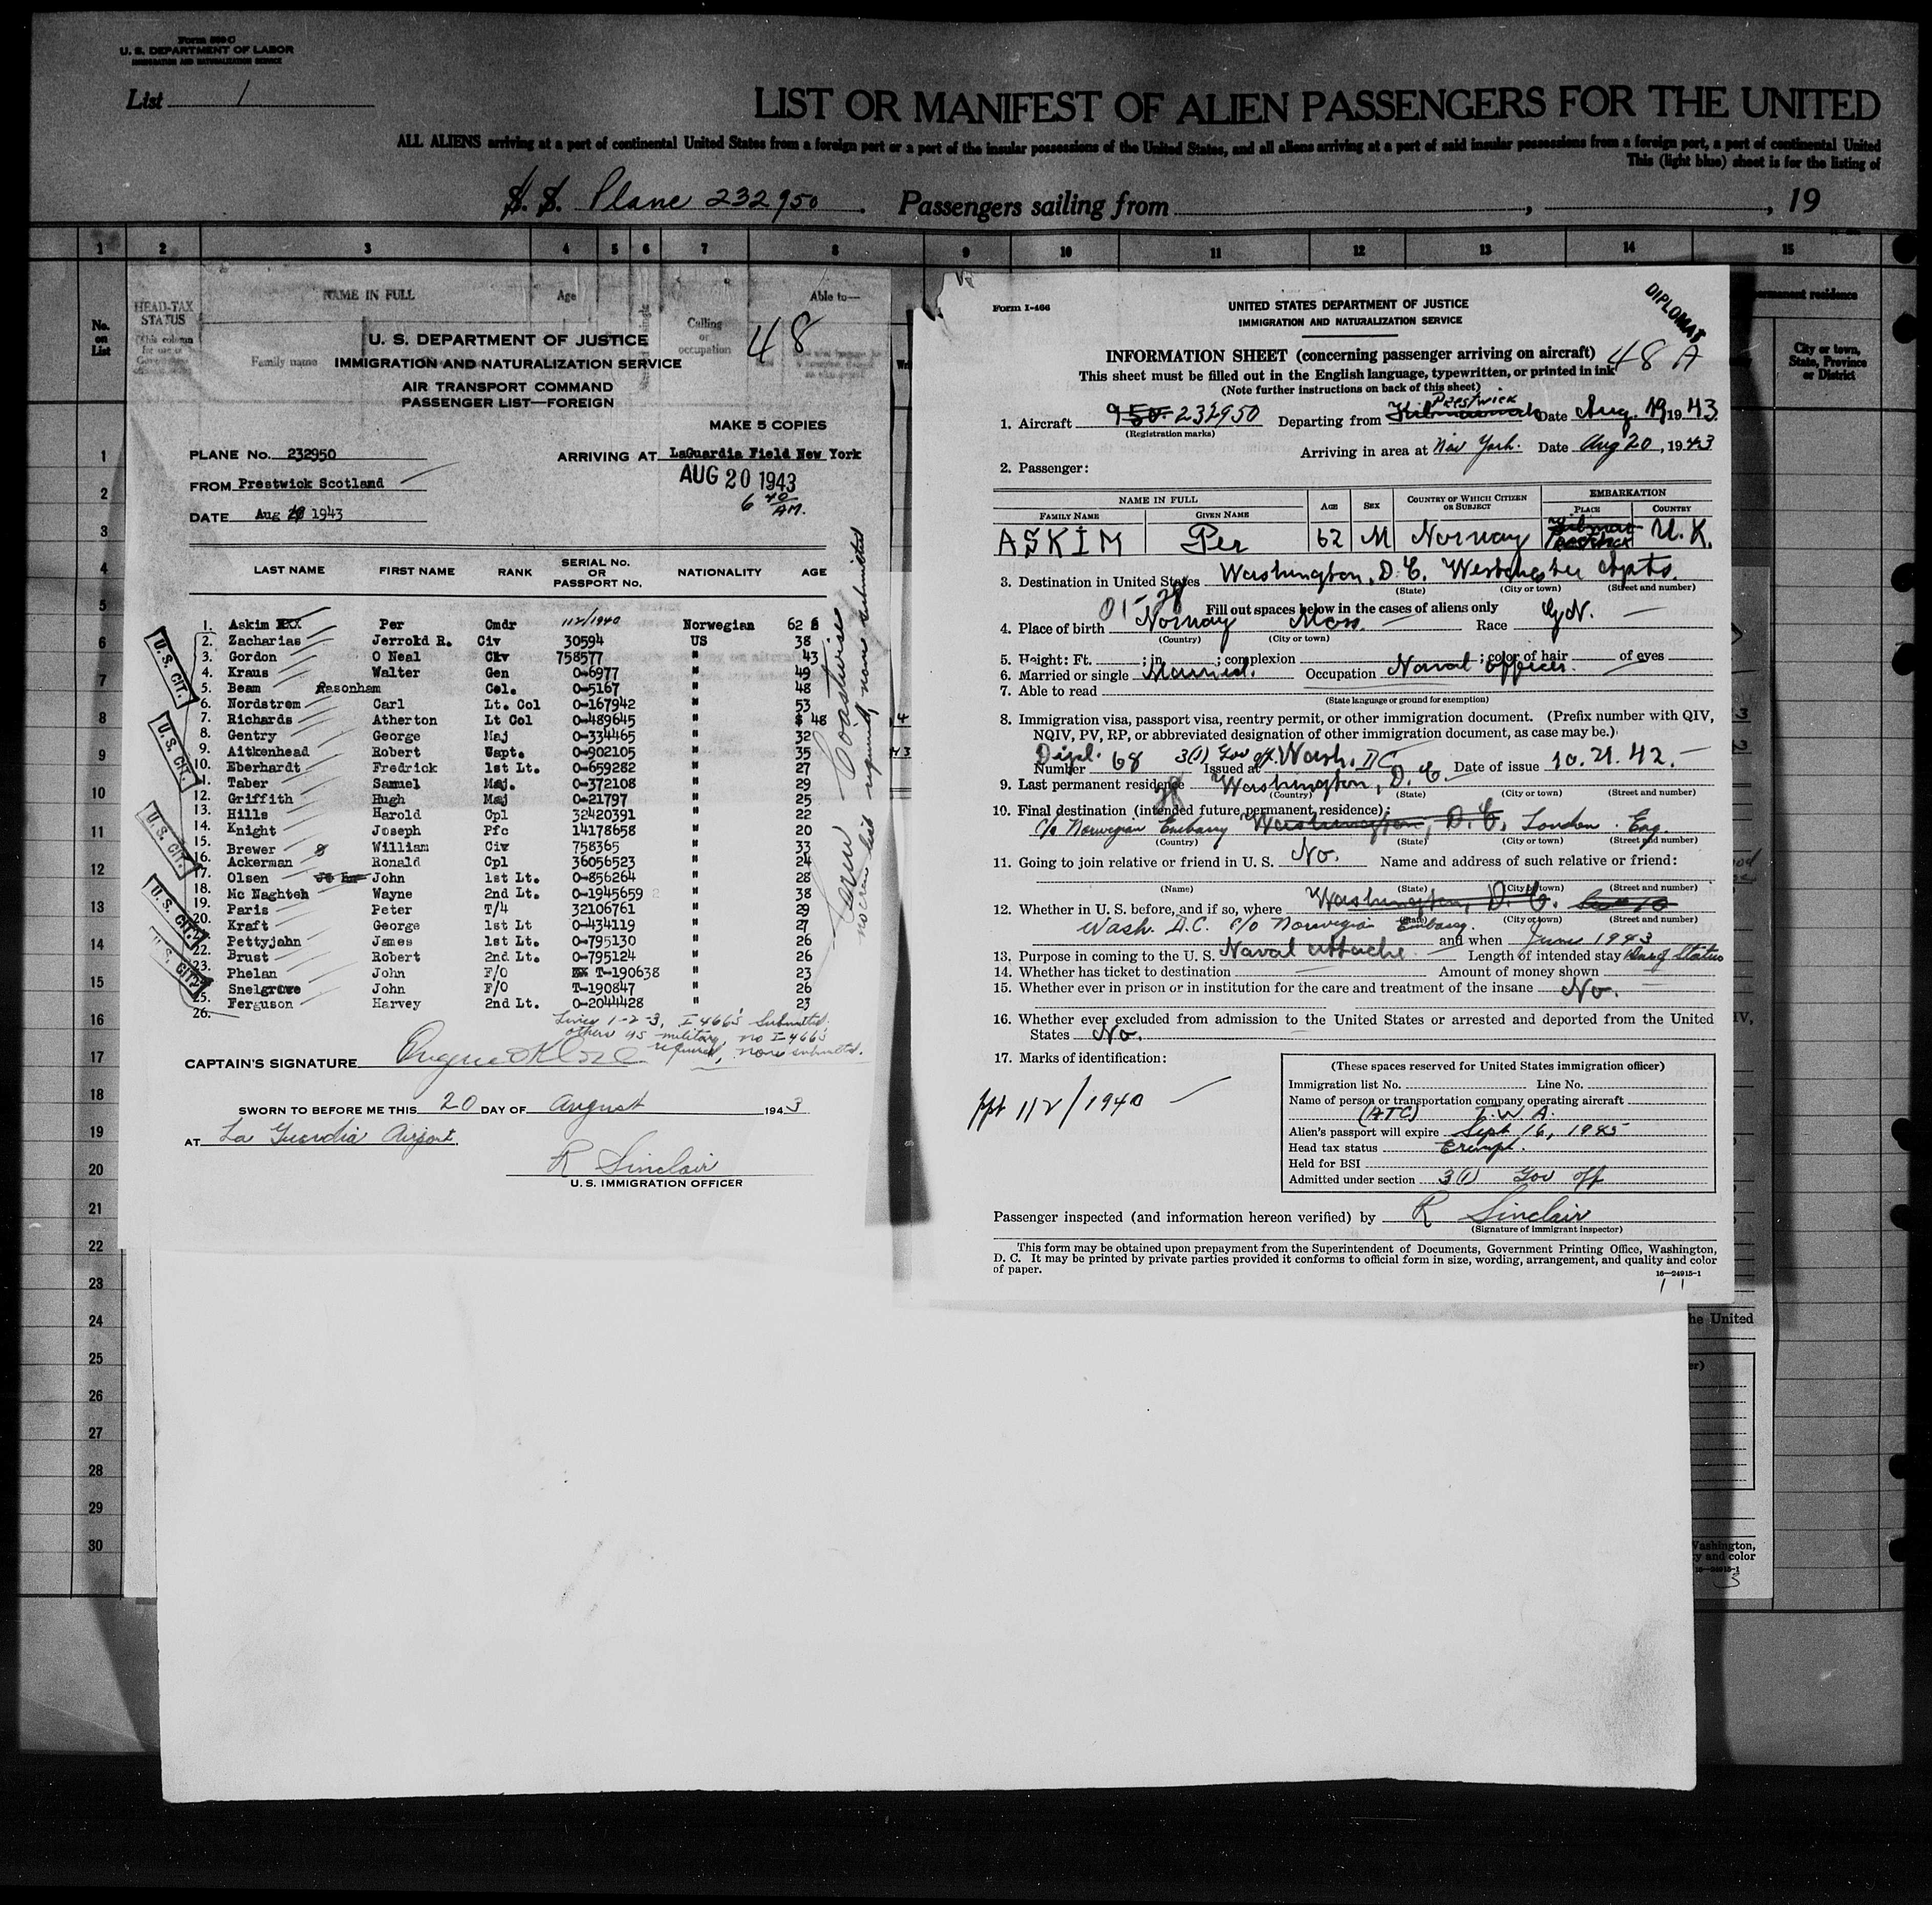 Form 500 C
U. S. DEPARTMENT OF LABOR
IMMIGRATION AND NATURALIZATION SERVICE
List 1
LIST OR MANIFEST OF ALIEN PASSENGERS FOR THE UNITED
ALL ALIENS arriving at a port of continental United States from a foreign port or a port of the insular possessions of the United States, and all aliens arriving at a port of said insular possessions from a foreign port, a port of continental United
This (light blue) sheet is for the listing of
S. S. Plane 232950. Passengers sailing from , , 19
1 2 3 4 5 6 7 8 9 10 11 12 13 14 15
No. on List
HEAD-TAX STATUS
NAME IN FULL
Age
Able to—
Family name
Calling or occupation
48
U. S. DEPARTMENT OF JUSTICE
IMMIGRATION AND NATURALIZATION SERVICE
AIR TRANSPORT COMMAND
PASSENGER LIST—FOREIGN
MAKE 5 COPIES
PLANE No. 232950 ARRIVING AT LaGuardia Field New York
AUG 20 1943
6 40 AM.
FROM Prestwick Scotland
DATE Aug 19 1943
LAST NAME FIRST NAME RANK SERIAL No. OR PASSPORT No. NATIONALITY AGE
1. Askim XXX Per Cmdr 112/1940 Norwegian 62
2. Zacharias Jerrold R. Civ 30594 US 38
3. Gordon O Neal Civ 758577 " 43
4. Kraus Walter Gen O-6977 " 49
5. Beam Rasonham Col. O-5167 " 48
6. Nordstrom Carl Lt. Col O-167942 " 53
7. Richards Atherton Lt Col O-489645 " 48
8. Gentry George Maj O-334465 " 32
9. Aitkenhead Robert Capt. O-902105 " 35
10. Eberhardt Fredrick 1st Lt. O-659282 " 27
11. Taber Samuel Maj. O-372108 " 29
12. Griffith Hugh Maj O-21797 " 25
13. Hills Harold Cpl 32420391 " 22
14. Knight Joseph Pfc 14178658 " 20
15. Brewer William Civ 758365 " 33
16. Ackerman Ronald Cpl 36056523 " 24
17. Olsen John 1st Lt. O-856264 " 28
18. Mc Naghteh Wayne 2nd Lt. O-1945659 " 38
19. Paris Peter T/4 32106761 " 29
20. Kraft George 1st Lt O-434119 " 27
Pettyjahn James 1st Lt. O-795130 " 26
22. Brust Robert 2nd Lt. O-795124 " 26
23. Phelan John F/O T-190638 " 23
Snelgrove John F/O T-190847 " 26
25. Ferguson Harvey 2nd Lt. O-2044428 " 23
26.
U. S. CIT.
U. S. CIT.
U. S. CIT.
U. S. CIT.
U. S. CIT.
Crew Coastwise
no crew list required, none submitted
Lines 1-2-3, I 466's Submitted.
others as military, no I 466's
required, none submitted.
CAPTAIN'S SIGNATURE
SWORN TO BEFORE ME THIS 20 DAY OF August 1943
AT La Guardia Airport.
R Sinclair
U. S. IMMIGRATION OFFICER
1
2
3
4
5
6
7
8
9
10
11
12
13
14
15
16
17
18
19
20
21
22
23
24
25
26
27
28
29
30
Form I-466
UNITED STATES DEPARTMENT OF JUSTICE
IMMIGRATION AND NATURALIZATION SERVICE
DIPLOMAT
INFORMATION SHEET (concerning passenger arriving on aircraft) 48 A
This sheet must be filled out in the English language, typewritten, or printed in ink
(Note further instructions on back of this sheet)
1. Aircraft 950. 232950 Departing from Prestwick Date Aug. 19 1943
(Registration marks)
Arriving in area at New York. Date Aug 20, 1943
2. Passenger:
NAME IN FULL AGE SEX COUNTRY OF WHICH CITIZEN OR SUBJECT EMBARKATION
FAMILY NAME GIVEN NAME PLACE COUNTRY
ASKIM Per 62 M Norway Prestwick U. K.
3. Destination in United States Washington, D. C. Westchester Apts.
(State) (City or town) (Street and number)
Fill out spaces below in the cases of aliens only
4. Place of birth Norway Moss Race
(Country) (City or town)
5. Height: Ft. ; in. ; complexion ; color of hair of eyes
6. Married or single Married. Occupation Naval officer.
7. Able to read
(State language or ground for exemption)
8. Immigration visa, passport visa, reentry permit, or other immigration document. (Prefix number with QIV,
NQIV, PV, RP, or abbreviated designation of other immigration document, as case may be.)
Dipl. 3(1) Gov off.
Number 68 Issued at Wash. DC Date of issue 10. 21. 42.
9. Last permanent residence Washington, D. C.
(Country) (State) (City or town) (Street and number)
10. Final destination (intended future permanent residence):
c/o Norwegian Embassy Washington, D. C. London. Eng.
(Country) (State) (City or town) (Street and number)
11. Going to join relative or friend in U. S. No. Name and address of such relative or friend:
(Name) (State) (City or town) (Street and number)
12. Whether in U. S. before, and if so, where Washington, D. C.
(State) (City or town) (Street and number)
Wash. D.C. c/o Norwegian Embassy. and when June 1943
13. Purpose in coming to the U. S. Naval attache Length of intended stay Dur of Status
14. Whether has ticket to destination Amount of money shown
15. Whether ever in prison or in institution for the care and treatment of the insane No.
16. Whether ever excluded from admission to the United States or arrested and deported from the United
States No.
17. Marks of identification:
ppt 112/1940
(These spaces reserved for United States immigration officer)
Immigration list No. Line No.
Name of person or transportation company operating aircraft
(ATC) T. W. A.
Alien's passport will expire Sept 16, 1945
Head tax status Exempt.
Held for BSI
Admitted under section 3(1) Gov off
Passenger inspected (and information hereon verified) by R Sinclair
(Signature of immigrant inspector)
This form may be obtained upon prepayment from the Superintendent of Documents, Government Printing Office, Washington,
D. C. It may be printed by private parties provided it conforms to official form in size, wording, arrangement, and quality and color
of paper.
16—24915-1
permanent residence
City or town, State, Province or District
the United
Washington,
y and color
16—24915-1
3